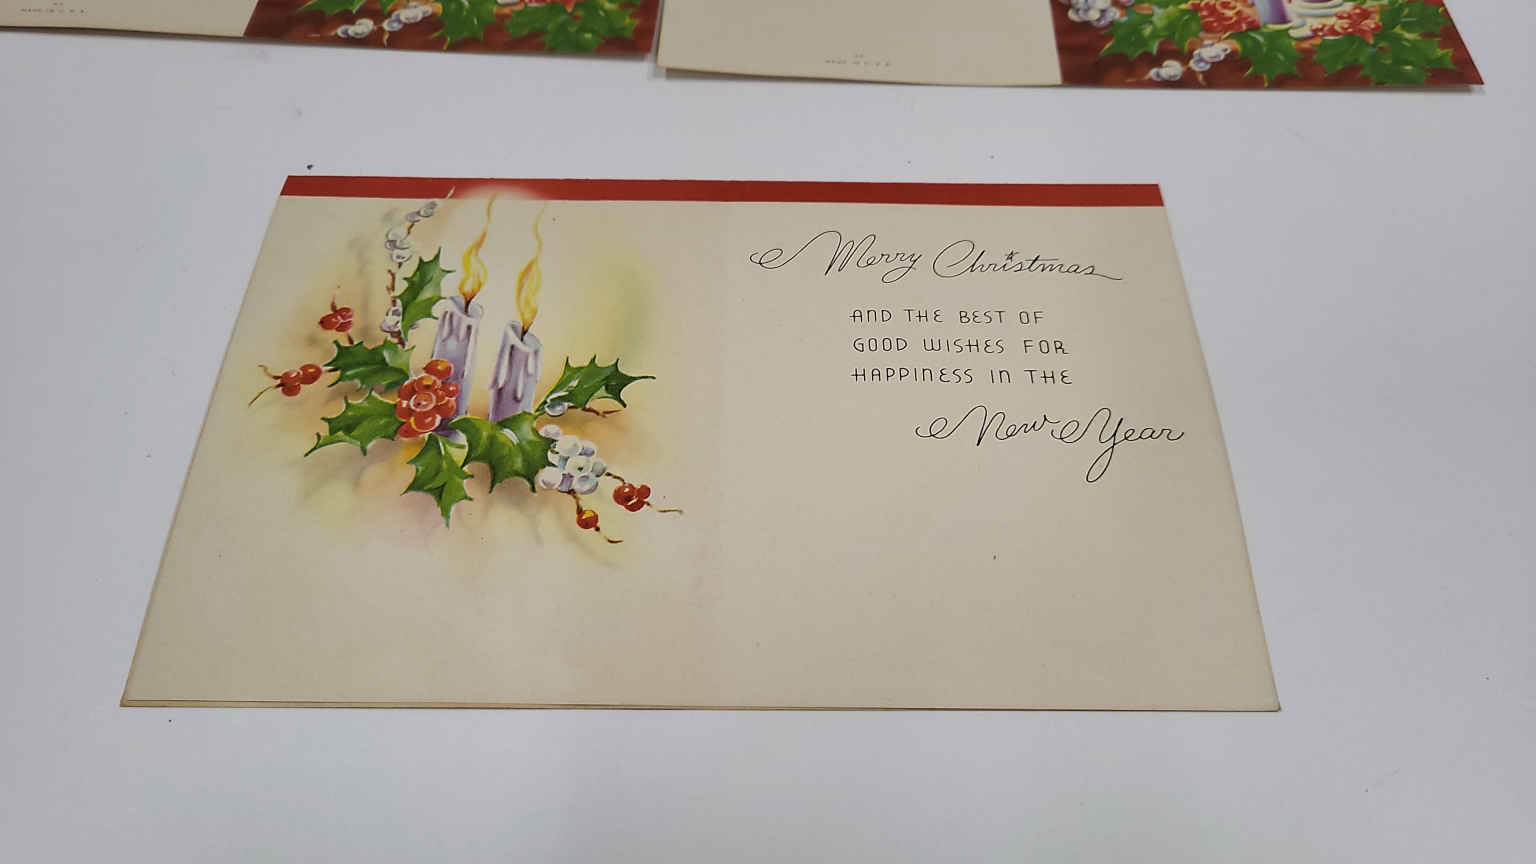 Merry Christmas
AND THE BEST OF
GOOD WISHES FOR
HAPPINESS IN THE
New Year